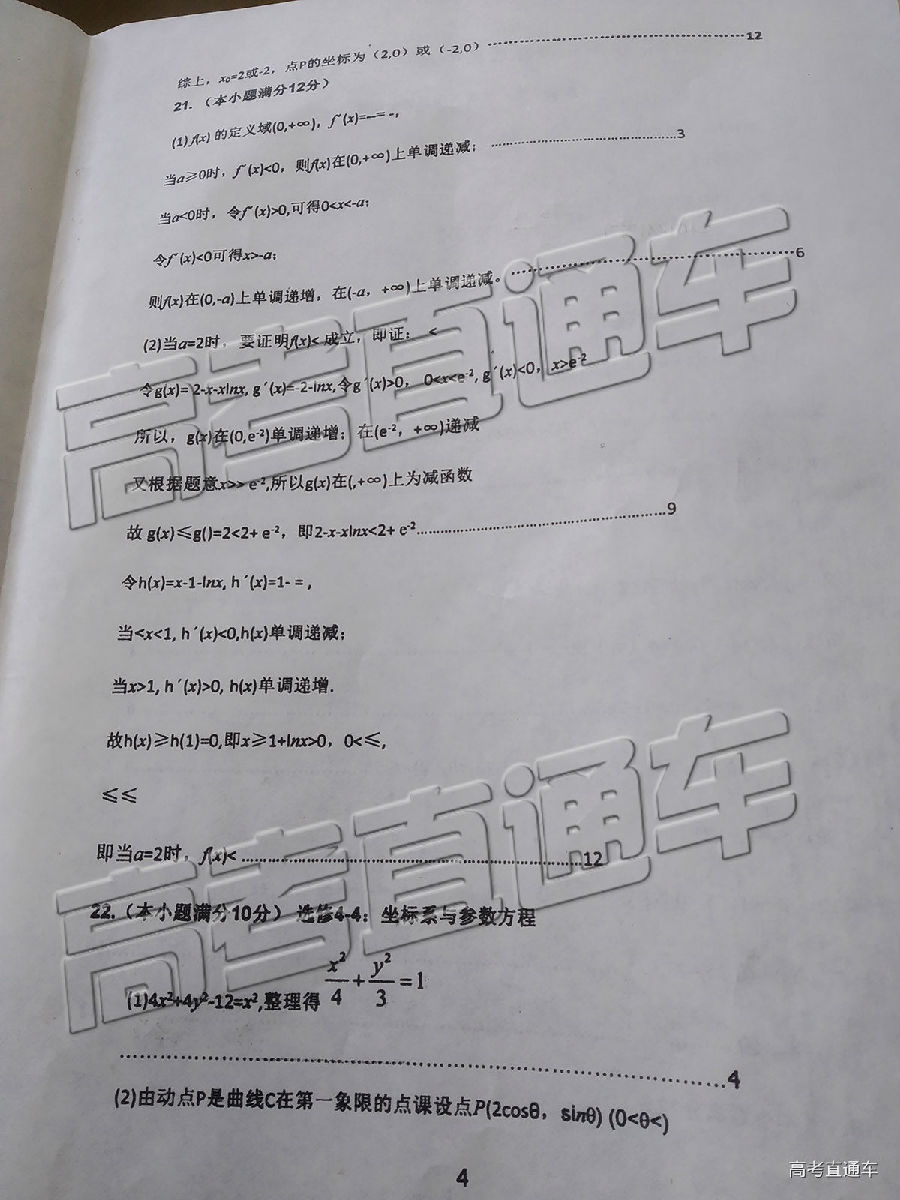 综上，x₀=2或-2，点P的坐标为（2,0）或（-2,0）……………………………………12
21.（本小题满分12分）
(1) f(x) 的定义域(0,+∞)，f´(x)=--= -,
当a≥0时，f´(x)<0，则f(x)在(0,+∞)上单调递减；……………………………3
当a<0时，令f´(x)>0,可得0<x<-a；
令f´(x)<0可得x>-a；
则f(x)在(0,-a)上单调递增，在(-a，+∞)上单调递减。……………………………6
(2)当a=2时，要证明f(x)< 成立，即证： <
令g(x)= 2-x-xlnx, g´(x)=-2-lnx,令g´(x)>0， 0<x<e⁻², g´(x)<0，x>e⁻²
所以，g(x)在(0,e⁻²)单调递增；在(e⁻²，+∞)递减
又根据题意x>> e⁻²,所以g(x)在(,+∞)上为减函数
故 g(x)≤g()=2<2+ e⁻²，即2-x-xlnx<2+ e⁻²……………………………9
令h(x)=x-1-lnx, h´(x)=1- = ,
当<x<1, h´(x)<0,h(x)单调递减；
当x>1, h´(x)>0, h(x)单调递增.
故h(x)≥h(1)=0,即x≥1+lnx>0，0<≤,
≤≤
即当a=2时，f(x)< ……………………………………12
22.（本小题满分10分） 选修4-4：坐标系与参数方程
(1)4x²+4y²-12=x²,整理得 x²/4+y²/3=1
……………………………………………………4
(2)由动点P是曲线C在第一象限的点课设点P(2cosθ，sinθ) (0<θ<)
4
高考直通车
高考直通车
高考直通车